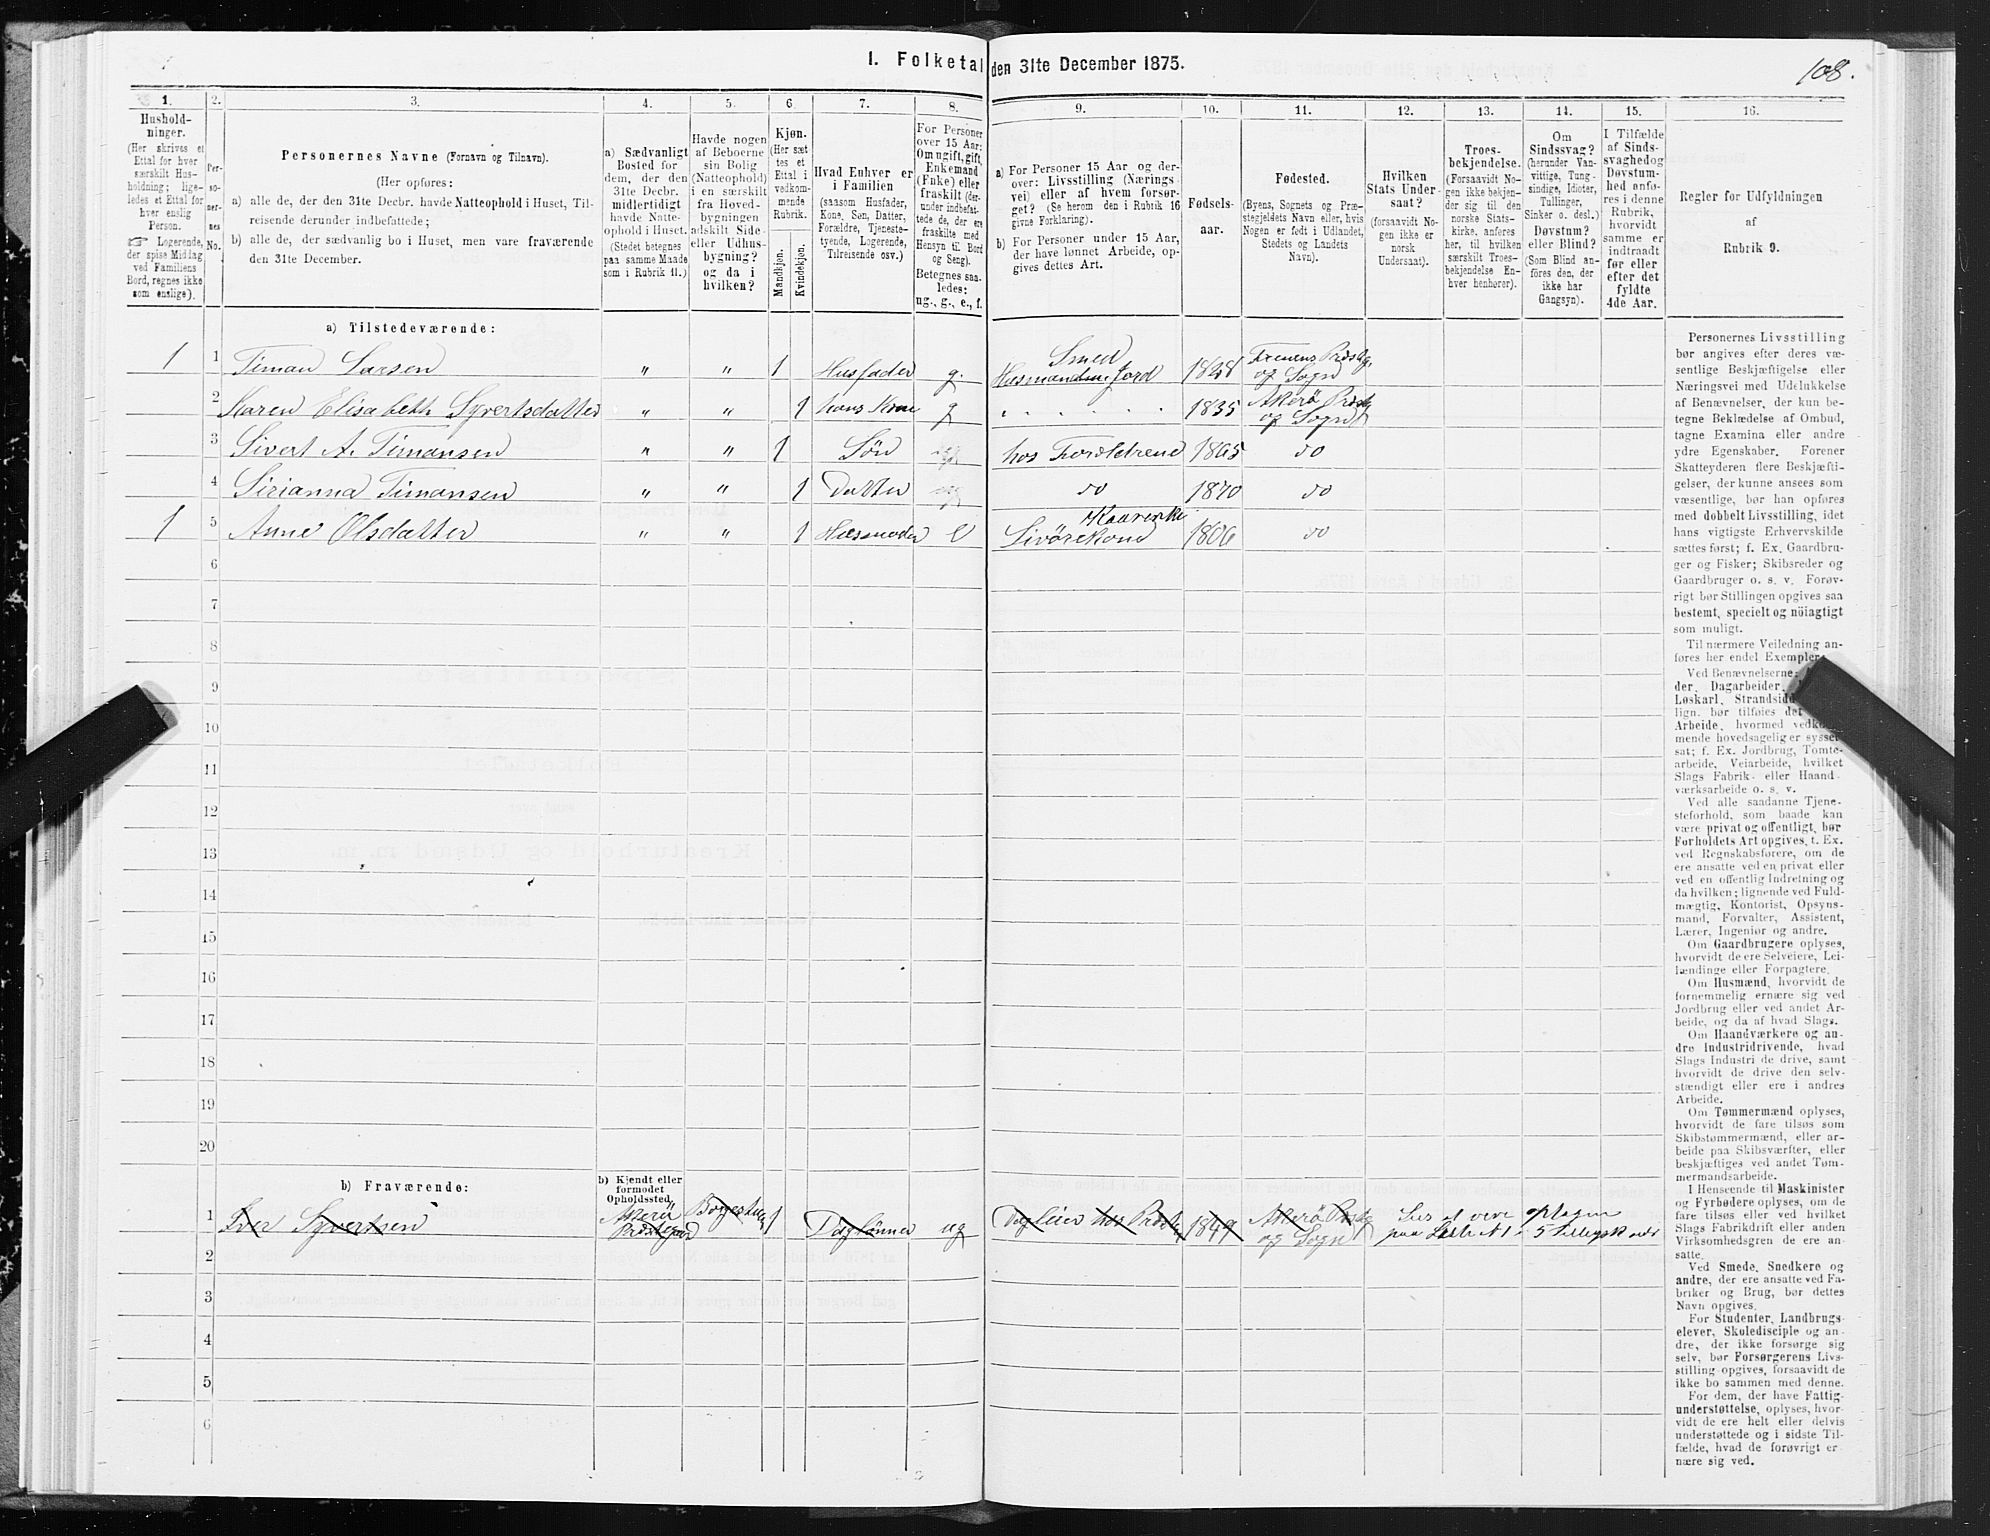 I. Folketal den 31te December 1875.
108.
1.
2.
3.
4.
5.
6.
7.
8.
9.
10.
11.
12.
13.
14.
15.
16.
Hushold-
ninger.
(Her skrives et
Ettal for hver
særskilt Hus-
holdning; lige-
ledes et Ettal for
hver enslig
Person.
☞ Logerende,
der spise Middag
ved Familiens
Bord, regnes ikke
som enslige).
Per-
so-
ner-
nes
No.
Personernes Navne (Fornavn og Tilnavn).
(Her opføres:
a) alle de, der den 31te Decbr. havde Natteophold i Huset, Til-
reisende derunder indbefattede;
b) alle de, der sædvanlig bo i Huset, men vare fraværende
den 31te December.
a) Sædvanligt
Bosted for
dem, der den
31te Decbr.
midlertidigt
havde Natte-
ophold i Huset.
(Stedet betegnes
paa samme Maade
som i Rubrik 11.)
Havde nogen
af Beboerne
sin Bolig
(Natteophold)
i en særskilt
fra Hoved-
bygningen
adskilt Side-
eller Udhus-
bygning?
og da i
hvilken?
Kjøn.
(Her sæt
tes et
Ettal i
vedkom-
mende
Rubrik.
Mandkjøn.
Kvindekjøn.
Hvad Enhver er
i Familien
(saasom Husfader,
Kone, Søn, Datter,
Forældre, Tjeneste-
tyende, Logerende,
Tilreisende osv.)
For Personer
over 15 Aar:
Om ugift, gift,
Enkemand
(Enke) eller
fraskilt (der-
under indbefat-
tede de, der ere
fraskilte med
Hensyn til Bord
og Seng).
Betegnes saa-
ledes:
ug., g., e., f.
a) For Personer 15 Aar og der-
over: Livsstilling (Nærings
vei) eller af hvem forsør-
get? (Se herom den i Rubrik 16
givne Forklaring).
b) For Personer under 15 Aar,
der have lønnet Arbeide, op-
gives dettes Art.
Fødsels-
aar.
Fødested.
(Byens, Sognets og Præ-
stegjeldets Navn eller, hvis
Nogen er født i Udlandet,
Stedets og Landets
Navn).
Hvilken
Stats Under-
saat?
(forsaavidt No-
gen ikke er
norsk
Undersaat).
Troes-
bekjendelse.
(Forsaavidt No-
gen ikke bekjen-
der sig til den
norske Stats-
kirke, anføres
her, til hvilken
særskilt Troes-
bekjendelse En-
hver henhører).
Om
Sindssvag?
(herunder Van-
vittige, Tung-
sindige, Idioter,
Tullinger,
Sinker o. desl.)
Døvstum?
eller Blind?
(Som Blind an-
føres den, der
ikke har
Gangsyn).
I Tilfælde
af Sinds-
svaghed og
Døvstum-
hed anfø-
res i denne
Rubrik,
hvorvidt
samme er
indtraadt
før eller
efter det
fyldte
4de Aar.
Regler for Udfyldningen
af
Rubrik 9.
a) Tilstedeværende:
1 1 Timan Larsen " " 1 Husfader g. Smed Husmand m Jord 1828 Præstg. og Sogn
2 Karen Elisabeth Syvertsdatter " " 1 hans Kone g 1835 Akerø Præstg og Sogn
3 Sivert A. Timansen " " 1 Søn hos Forældrene 1865 do
4 Sirianna Timansen " " 1 Datter do 1870 do
1 5 Anne Olsdatter " " 1 Husmoder e 1806 do
6
7
8
9
10
11
12
13
14
15
16
17
18
19
20
b) Fraværende:
b) Kjendt eller
formodet
Opholdssted.
1 Iver Syvertsen Akerø 1 Daglønner ug 1849 Akerø Præstg og Sogn
2
3
4
5
6
Personernes Livsstilling
bør angives efter deres væ-
sentlige Beskjæftigelse eller
Næringsvei med Udelukkelse
af Benævnelser, der kun be-
tegne Beklædelse af Ombud,
tagne Examina eller andre
ydre Egenskaber. Forener
Skatteyderen flere Beskjæfti-
gelser, der kunne ansees som
væsentlige, bør han opføres
med dobbelt Livsstilling, idet
hans vigtigste Erhvervskilde
sættes først; f. Ex. Gaardbru-
ger og Fisker; Skibsreder og
Gaardbruger o. s. v. Forøv-
rigt bør Stillingen opgives saa
bestemt, specielt og nöiagtigt
som muligt.
Til nærmere Veiledning an-
føres her endel Exempler
Ved Benævnelserne:
der, Dagarbeider,
Løskarl, Strandsid
lign. bør tilføies det
Arbeide, hvormed vedk
mende hovedsagelig er syssel
sat; f. Ex. Jordbrug, Tomte-
arbeide, Veiarbeide, hvilket
Slags Fabrik- eller Haand-
værksarbeide o. s. v.
Ved alle saadanne Tjene-
steforhold, som baade kan
være privat og offentligt, bør
Forholdets Art opgives, t. Ex.
ved Regnskabsførere, om de
ere ansatte ved en privat eller
ved en offentlig Indretning og
da hvilken; lignende ved Fuld-
mægtig, Kontorist, Opsyns-
mand, Forvalter, Assistent,
Lærer, Ingeniør og andre.
Om Gaardbrugere oplyses,
hvorvidt de ere Selveiere, Lei-
lændinge eller Forpagtere.
Om Husmænd, hvorvidt de
fornemmelig ernære sig ved
Jordbrug eller ved andet Ar-
beide, og da af hvad Slags.
Om Haandværkere og an-
dre Industridrivende, hvad
Slags Industri de drive, samt
hvorvidt de drive den selv-
stændigt eller ere i andres
Arbeide.
Om Tømmermænd oplyses,
hvorvidt de fare tilsøs som
Skibstømmermænd, eller ar-
beide paa Skibsværfter, eller
beskjæftiges ved andet Tøm-
mermandsarbeide.
I Henseende til Maskinister
og Fyrbødere oplyses, om de
fare tilsøs eller ved hvilket
Slags Fabrikdrift eller anden
Virksomhedsgren de ere an-
satte.
Ved Smede, Snedkere og
andre, der ere ansatte ved Fa-
briker og Brug, bør dettes
Navn opgives.
For Studenter, Landbrugs-
elever, Skoledisciple og an-
dre, der ikke forsørge sig
selv, bør Forsørgerens Livs-
stilling opgives, forsaavidt de
ikke bo sammen med denne.
For dem, der have Fattig-
understøttelse, oplyses, hvor-
vidt de ere helt eller delvis
understøttede og i sidste Til-
fælde, hvad de forøvrigt er-
nære sig ved.